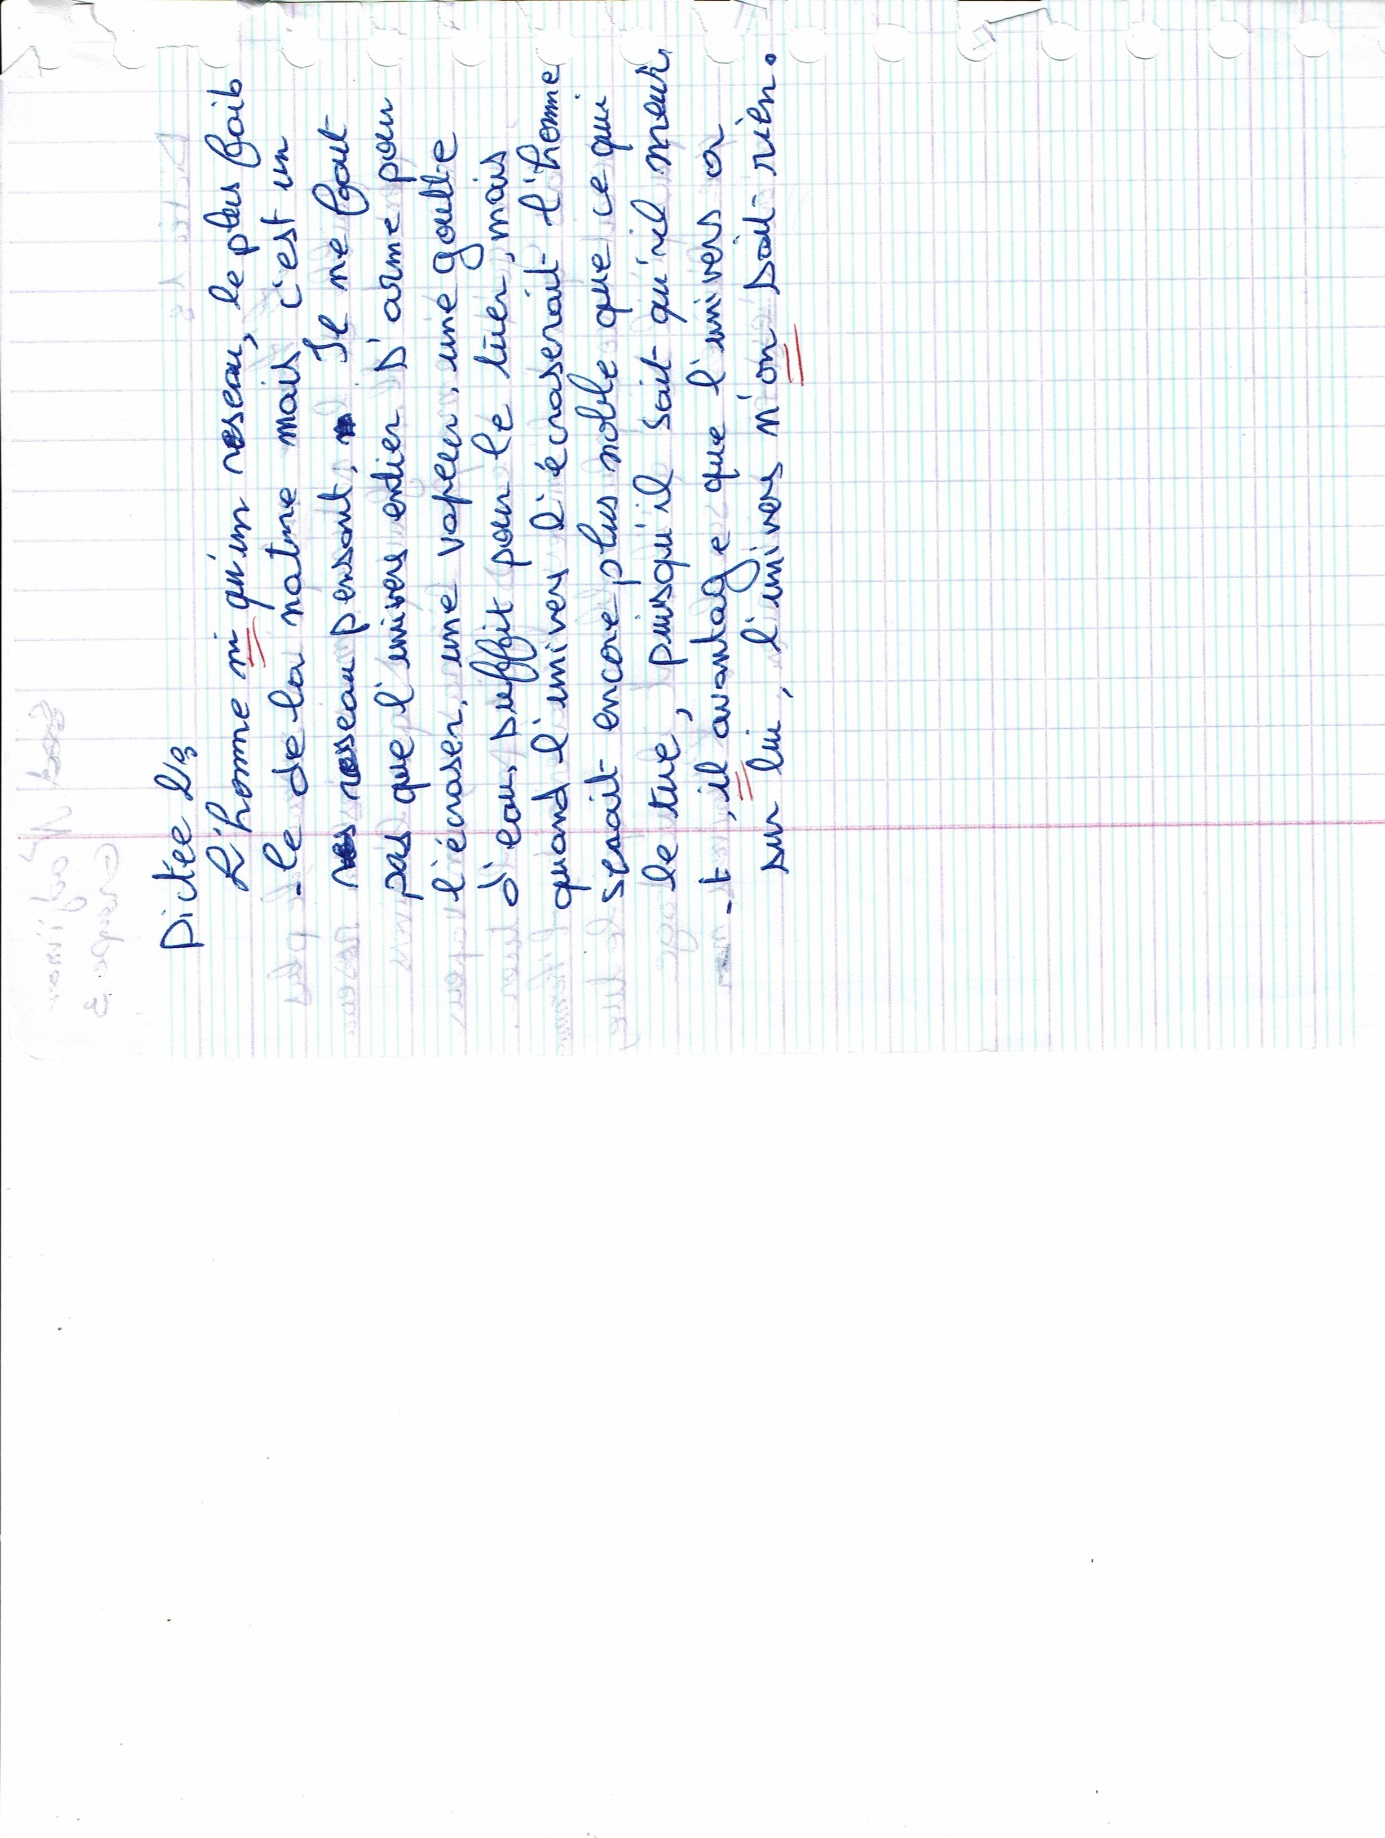 Dictée
L'homme ni qu'un roseau, le plus faib
-le de la natme mais c'est un
roseau pensant, Il ne faut
pas que l'univers entier s'arme pour
l'écraser, une vapeur, une goutte
d'eau, suffit pour le tuer, mais
quand l'univers l'écraserait l'homme
serait encore plus noble que ce qui
le tue, puisqu'il sait qu'il meur
-t, il avantage que l'univers a
sur lui, l'univers n'on sait rien.